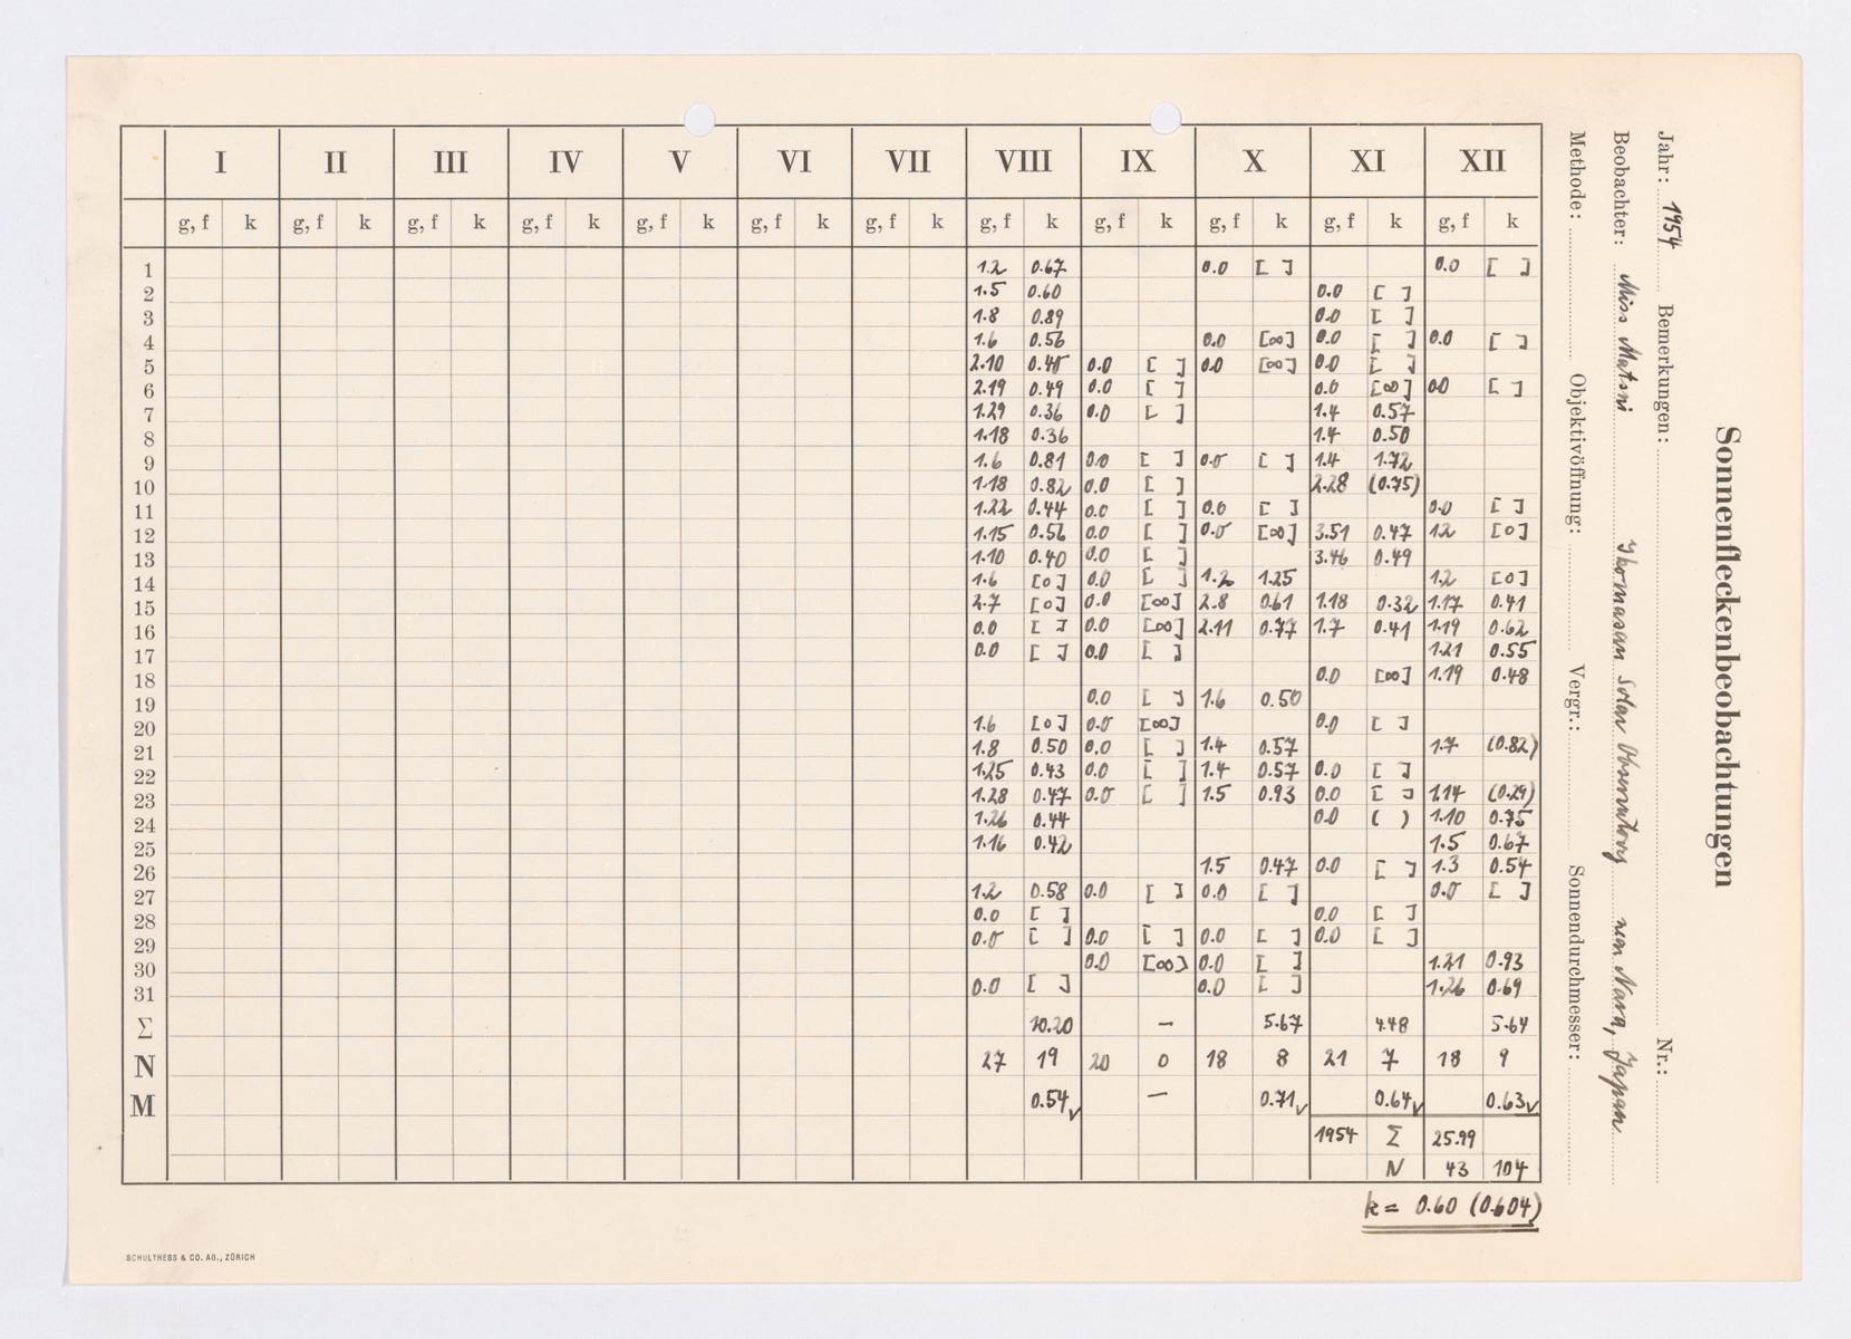 Sonnenfleckenbeobachtungen
Jahr: 1954 Bemerkungen: Nr.:
Beobachter: Miss Matsui Ikomasan Solar Observatory near Nara, Japan
Methode: Objektivöffnung: Vergr.: Sonnendurchmesser:
I II III IV V VI VII VIII IX X XI XII
g, f k g, f k g, f k g, f k g, f k g, f k g, f k g, f k g, f k g, f k g, f k g, f k
1 1.2 0.67 0.0 [ ] 0.0 [ ]
2 1.5 0.60 0.0 [ ]
3 1.8 0.89 0.0 [ ]
4 1.6 0.56 0.0 [∞] 0.0 [ ] 0.0 [ ]
5 2.10 0.45 0.0 [ ] 0.0 [∞] 0.0 [ ]
6 2.19 0.49 0.0 [ ] 0.0 [∞] 0.0 [ ]
7 1.29 0.36 0.0 [ ] 1.4 0.57
8 1.18 0.36 1.4 0.50
9 1.6 0.81 0.0 [ ] 0.0 [ ] 1.4 1.72
10 1.18 0.82 0.0 [ ] 2.28 (0.75)
11 1.22 0.44 0.0 [ ] 0.0 [ ] 0.0 [ ]
12 1.15 0.56 0.0 [ ] 0.0 [∞] 3.51 0.47 1.2 [0]
13 1.10 0.40 0.0 [ ] 3.46 0.49
14 1.6 [0] 0.0 [ ] 1.2 1.25 1.2 [0]
15 2.7 [0] 0.0 [∞] 2.8 0.61 1.18 0.32 1.17 0.41
16 0.0 [ ] 0.0 [∞] 2.11 0.77 1.7 0.41 1.19 0.62
17 0.0 [ ] 0.0 [ ] 1.21 0.55
18 0.0 [∞] 1.19 0.48
19 0.0 [ ] 1.6 0.50
20 1.6 [0] 0.0 [∞] 0.0 [ ]
21 1.8 0.50 0.0 [ ] 1.4 0.57 1.7 (0.82)
22 1.25 0.43 0.0 [ ] 1.4 0.57 0.0 [ ]
23 1.28 0.47 0.0 [ ] 1.5 0.93 0.0 [ ] 1.14 (0.29)
24 1.26 0.44 0.0 ( ) 1.10 0.75
25 1.16 0.42 1.5 0.67
26 1.5 0.47 0.0 [ ] 1.3 0.54
27 1.2 0.58 0.0 [ ] 0.0 [ ] 0.0 [ ]
28 0.0 [ ] 0.0 [ ]
29 0.0 [ ] 0.0 [ ] 0.0 [ ] 0.0 [ ]
30 0.0 [∞] 0.0 [ ] 1.21 0.93
31 0.0 [ ] 0.0 [ ] 1.26 0.69
Σ 10.20 — 5.67 4.48 5.64
N 27 19 20 0 18 8 21 7 18 9
M 0.54✓ — 0.71✓ 0.64✓ 0.63✓
1954 Σ 25.99
N 43 104
k = 0.60 (0.604)
SCHULTHESS & CO. AG., ZÜRICH